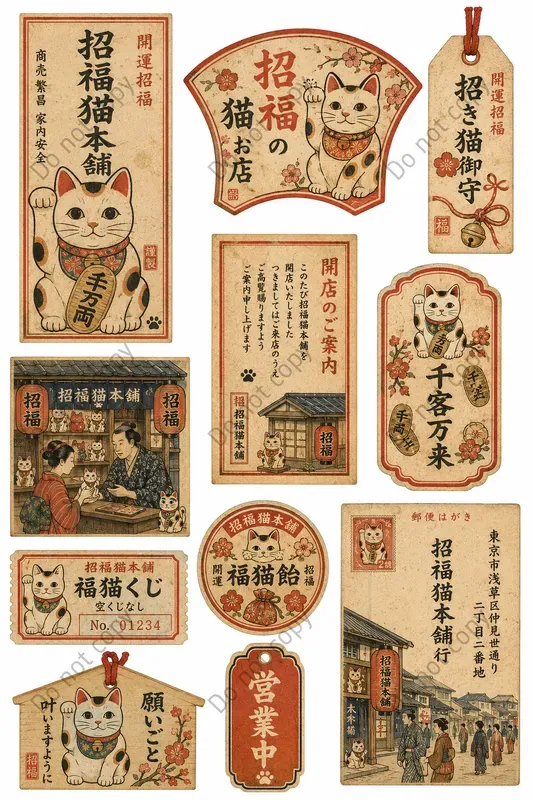 開運招福
招福猫本舗
商売繁昌 家内安全
謹製
千万両
招福の
猫お店
福
開運招福
招き猫御守
福
開店のご案内
このたび招福猫本舗を
開店いたしました
つきましてはご来店のうえ
ご高覧賜りますよう
ご案内申し上げます
招福
招福猫本舗
招福
万両
千客万来
千両
招福猫本舗
招福
招福
招福猫本舗
福猫くじ
空くじなし
No. 01234
招福猫本舗
開運
福猫飴
招福
郵便はがき
2銭
東京市浅草区仲見世通り
二丁目二番地
招福猫本舗行
招福猫本舗
願いごと
叶いますように
招福
営業中
Do not copy
Do not copy
Do not copy
Do not copy
Do not copy
Do not copy
Do not copy
Do not copy
Do not copy